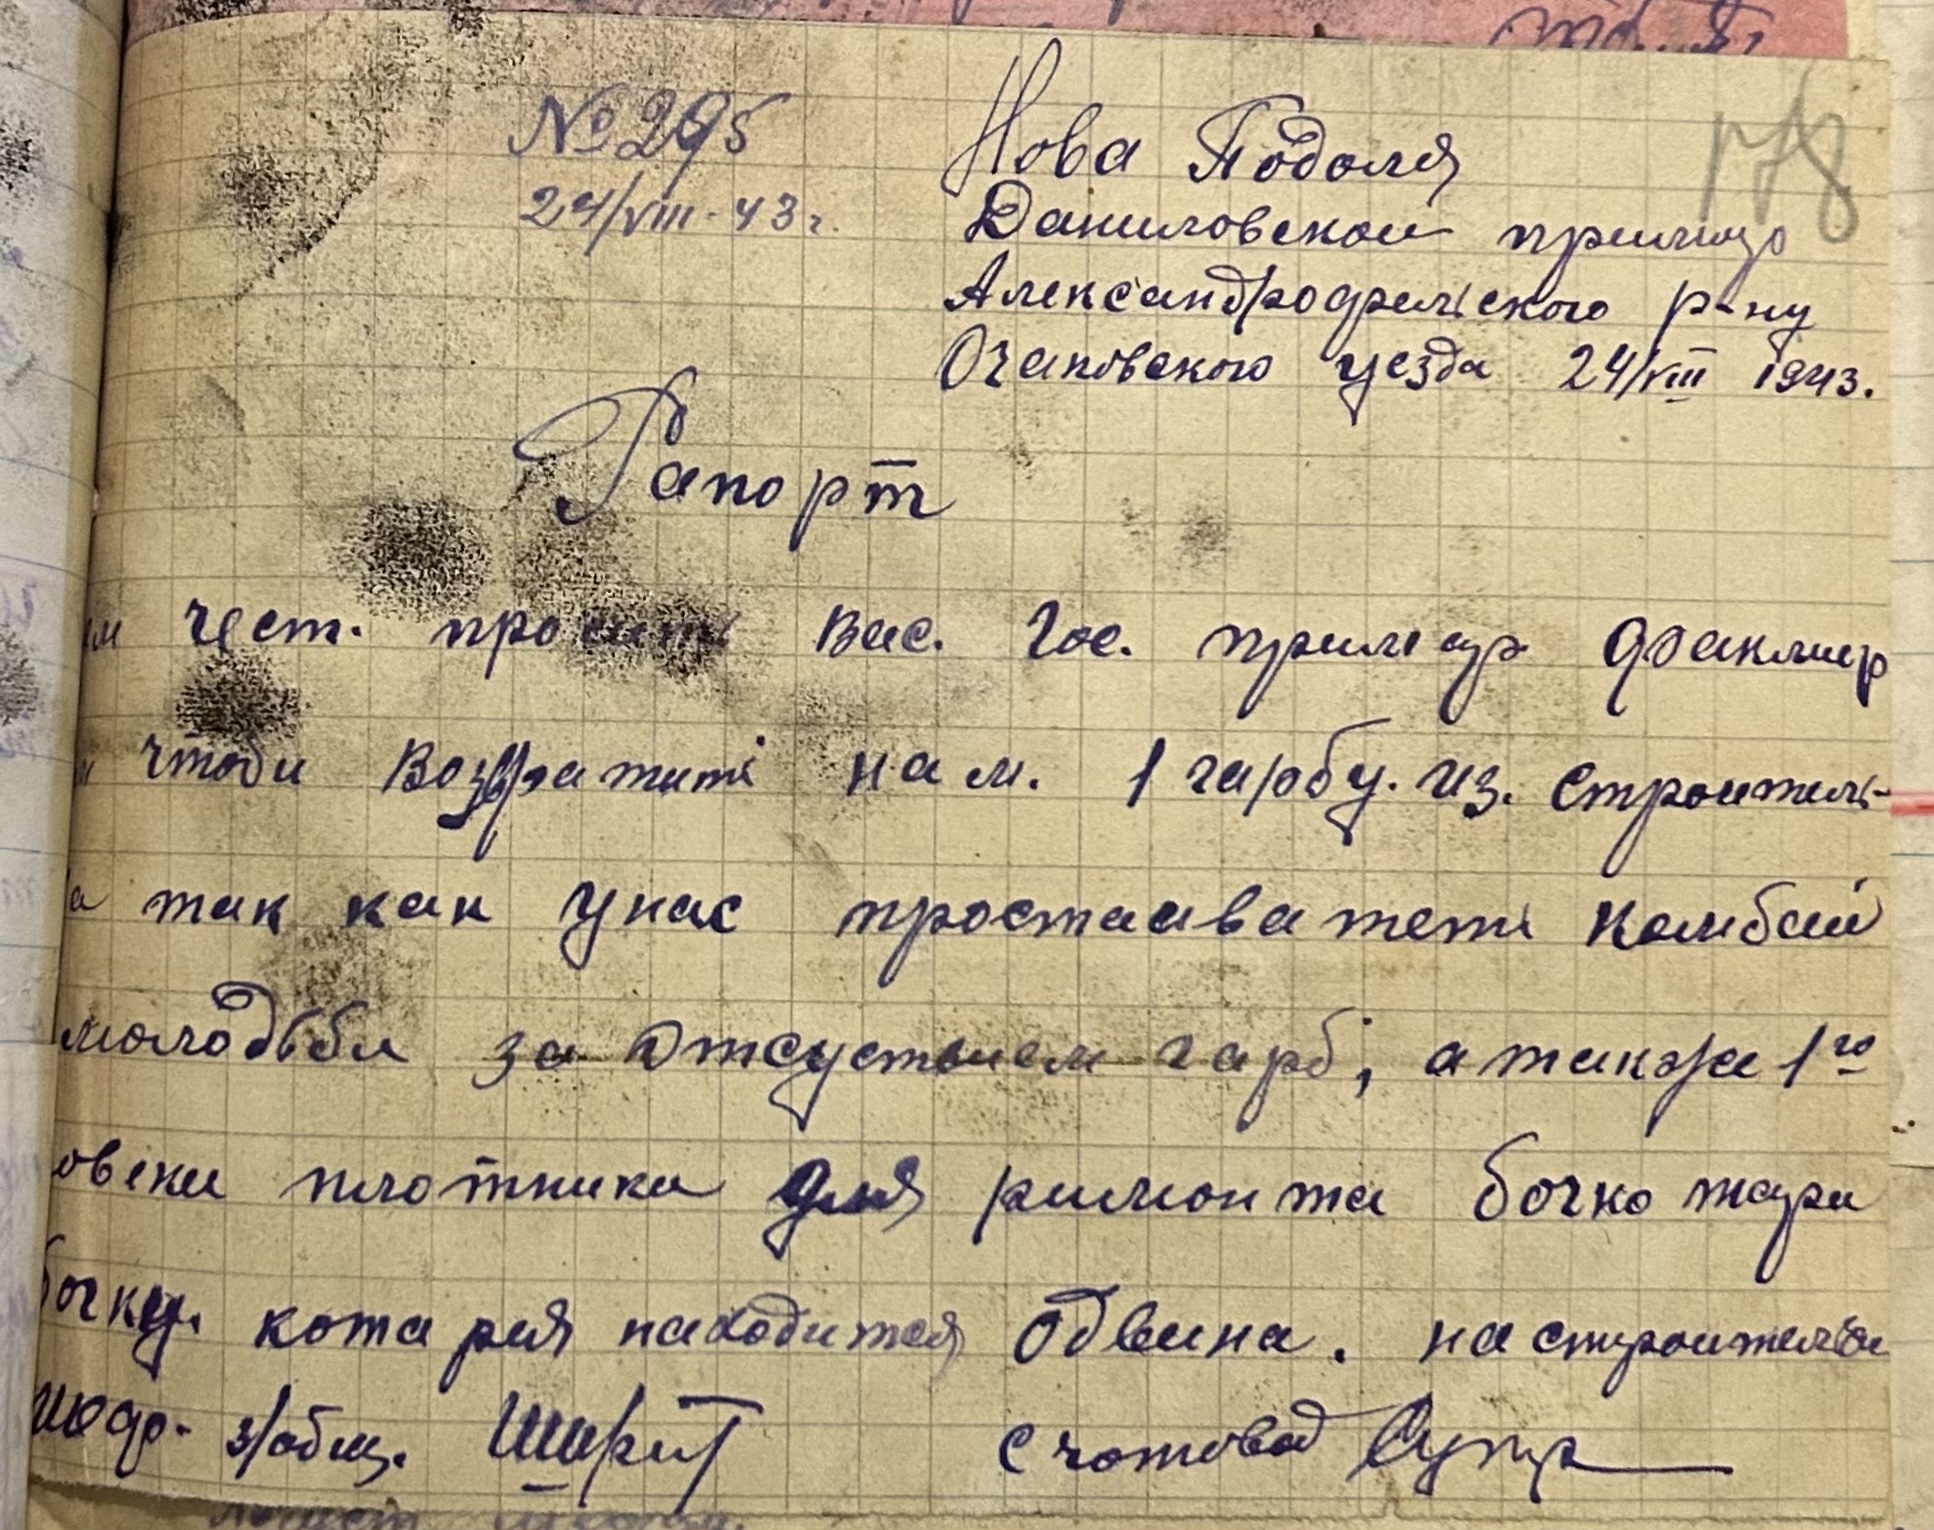 № 295
24/VIII-43 г.
Нова Подоля
Даниловской примар
Александродрельского р-ну
Очаковского уезда 24/VIII 1943.
Рапорт
чест. просить вас. Гос. примар
чтоби Возвратить нам. 1 гарбу. из. строитель-
а так как унас простаивать комбай
молодьби за отсуствием гарб, а также 1го
овека плотника для римонта бочко тари
бочку. котарая находится одвина. на строитель
Шеф. з/общ. Шмрит счотовод